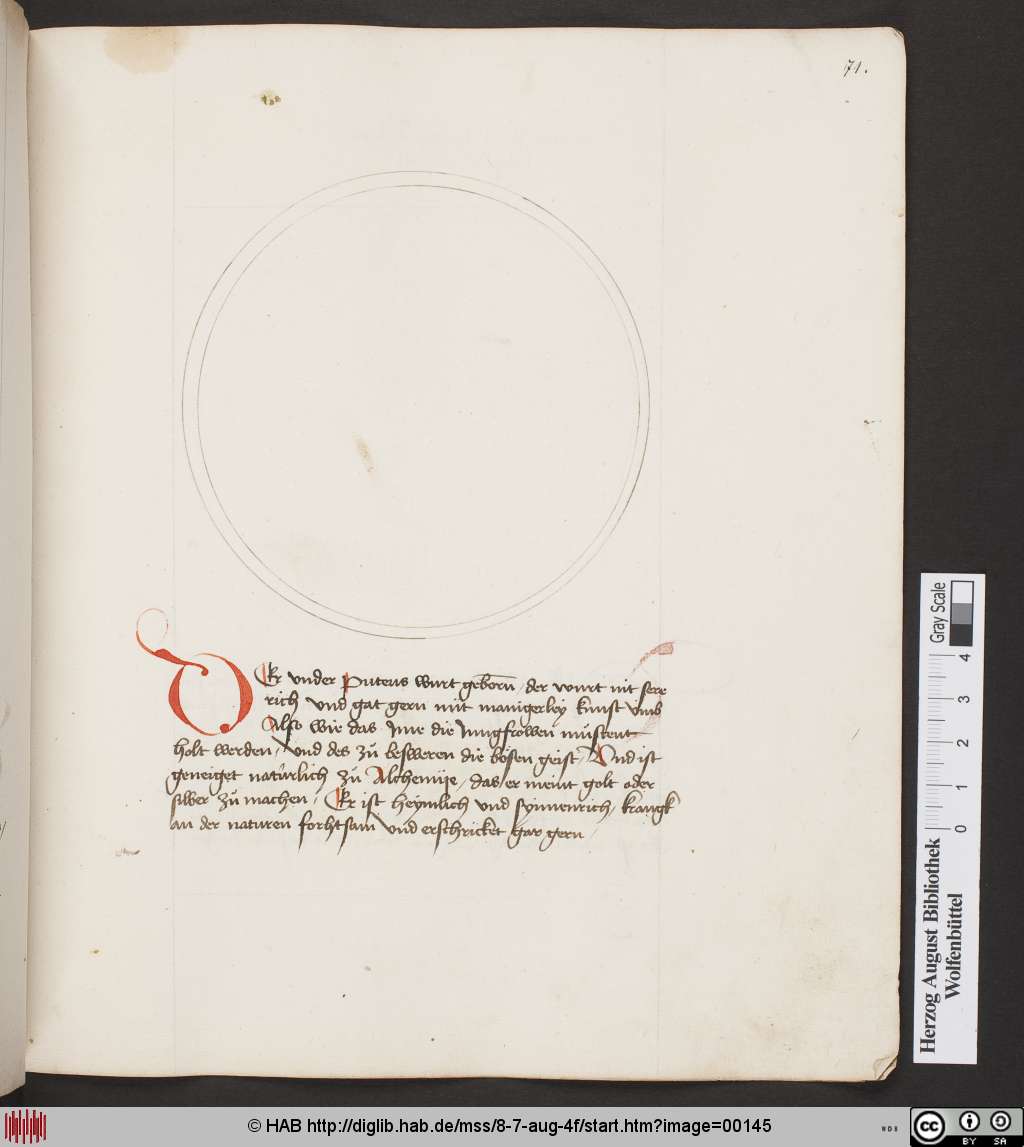 71.
DEr vnder Puteus wurt geborn̄ / der wurt nit sere
rich Vnd gat gern mit manigerley kunst vmb
Also wie das Jme die Jungfrowen müssent
holt werden / Vnd des zů besweren die bösen geist / Vnd ist
geneiget natürlich zů Alchemije / das er meint golt oder
silber zů machen / Er ist heymlich vnd synnenrich / krangk
an der naturen forhtsam Vnd erschricket gar gern
Gray Scale
0 1 2 3 4
Herzog August Bibliothek
Wolfenbüttel
© HAB http://diglib.hab.de/mss/8-7-aug-4f/start.htm?image=00145
WDB
cc BY SA